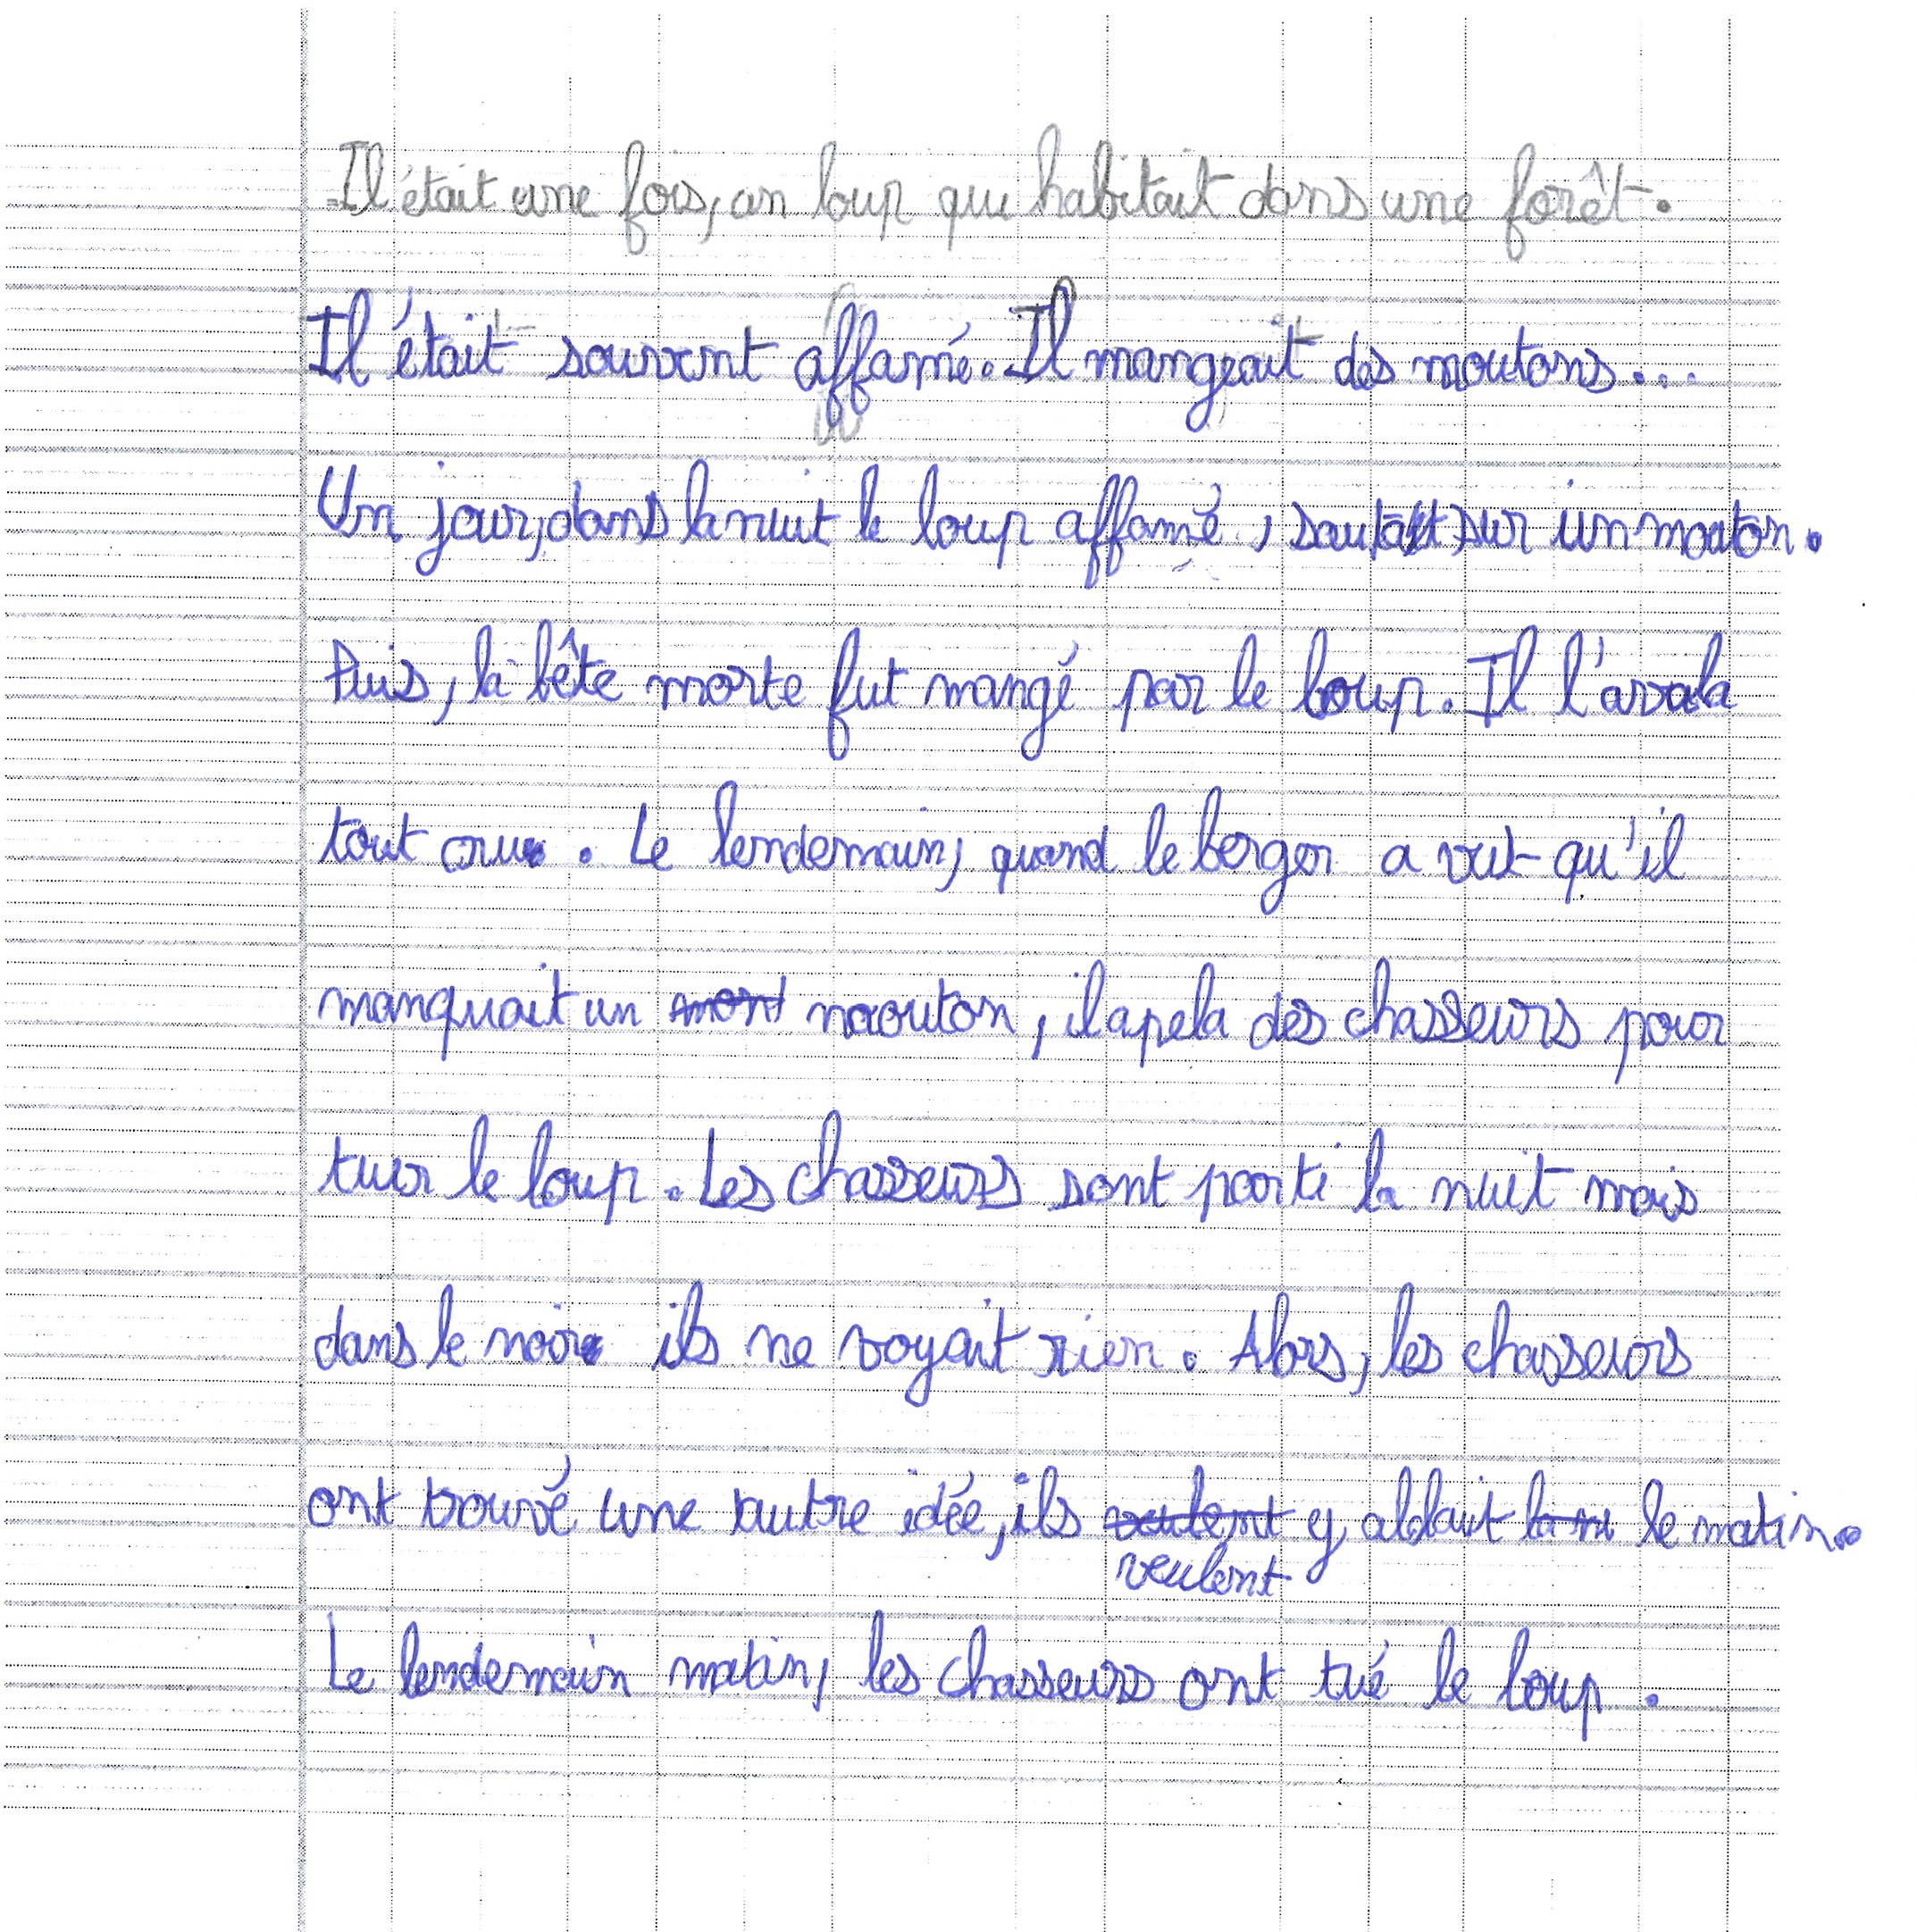 Il était une fois, un loup qui habitait dans une forêt.
Il était souvent affamé. Il mangeait des moutons...
Un jour, dans la nuit le loup affamé, sautait sur un mouton.
Puis, la bête morte fut mangé par le loup. Il l'avala
tout cru. Le lendemain, quand le berger a vut qu'il
manquait un mont mouton, il apela des chasseurs pour
tuer le loup. Les chasseurs sont parti la nuit mais
dans le noir ils ne voyait rien. Alors, les chasseurs
ont trouvé une autre idée, ils veulent y allait la nu le matin.
veulent
Le lendemain matin, les chasseurs ont tué le loup.